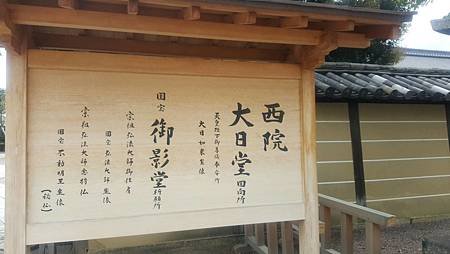 西院
大日堂 回向所
天皇陛下御尊儀奉安所
大日如来坐像
国宝 御影堂 祈願所
宗祖弘法大師御住房
国宝 弘法大師坐像
宗祖弘法大師念持仏
国宝 不動明王坐像
(秘仏)